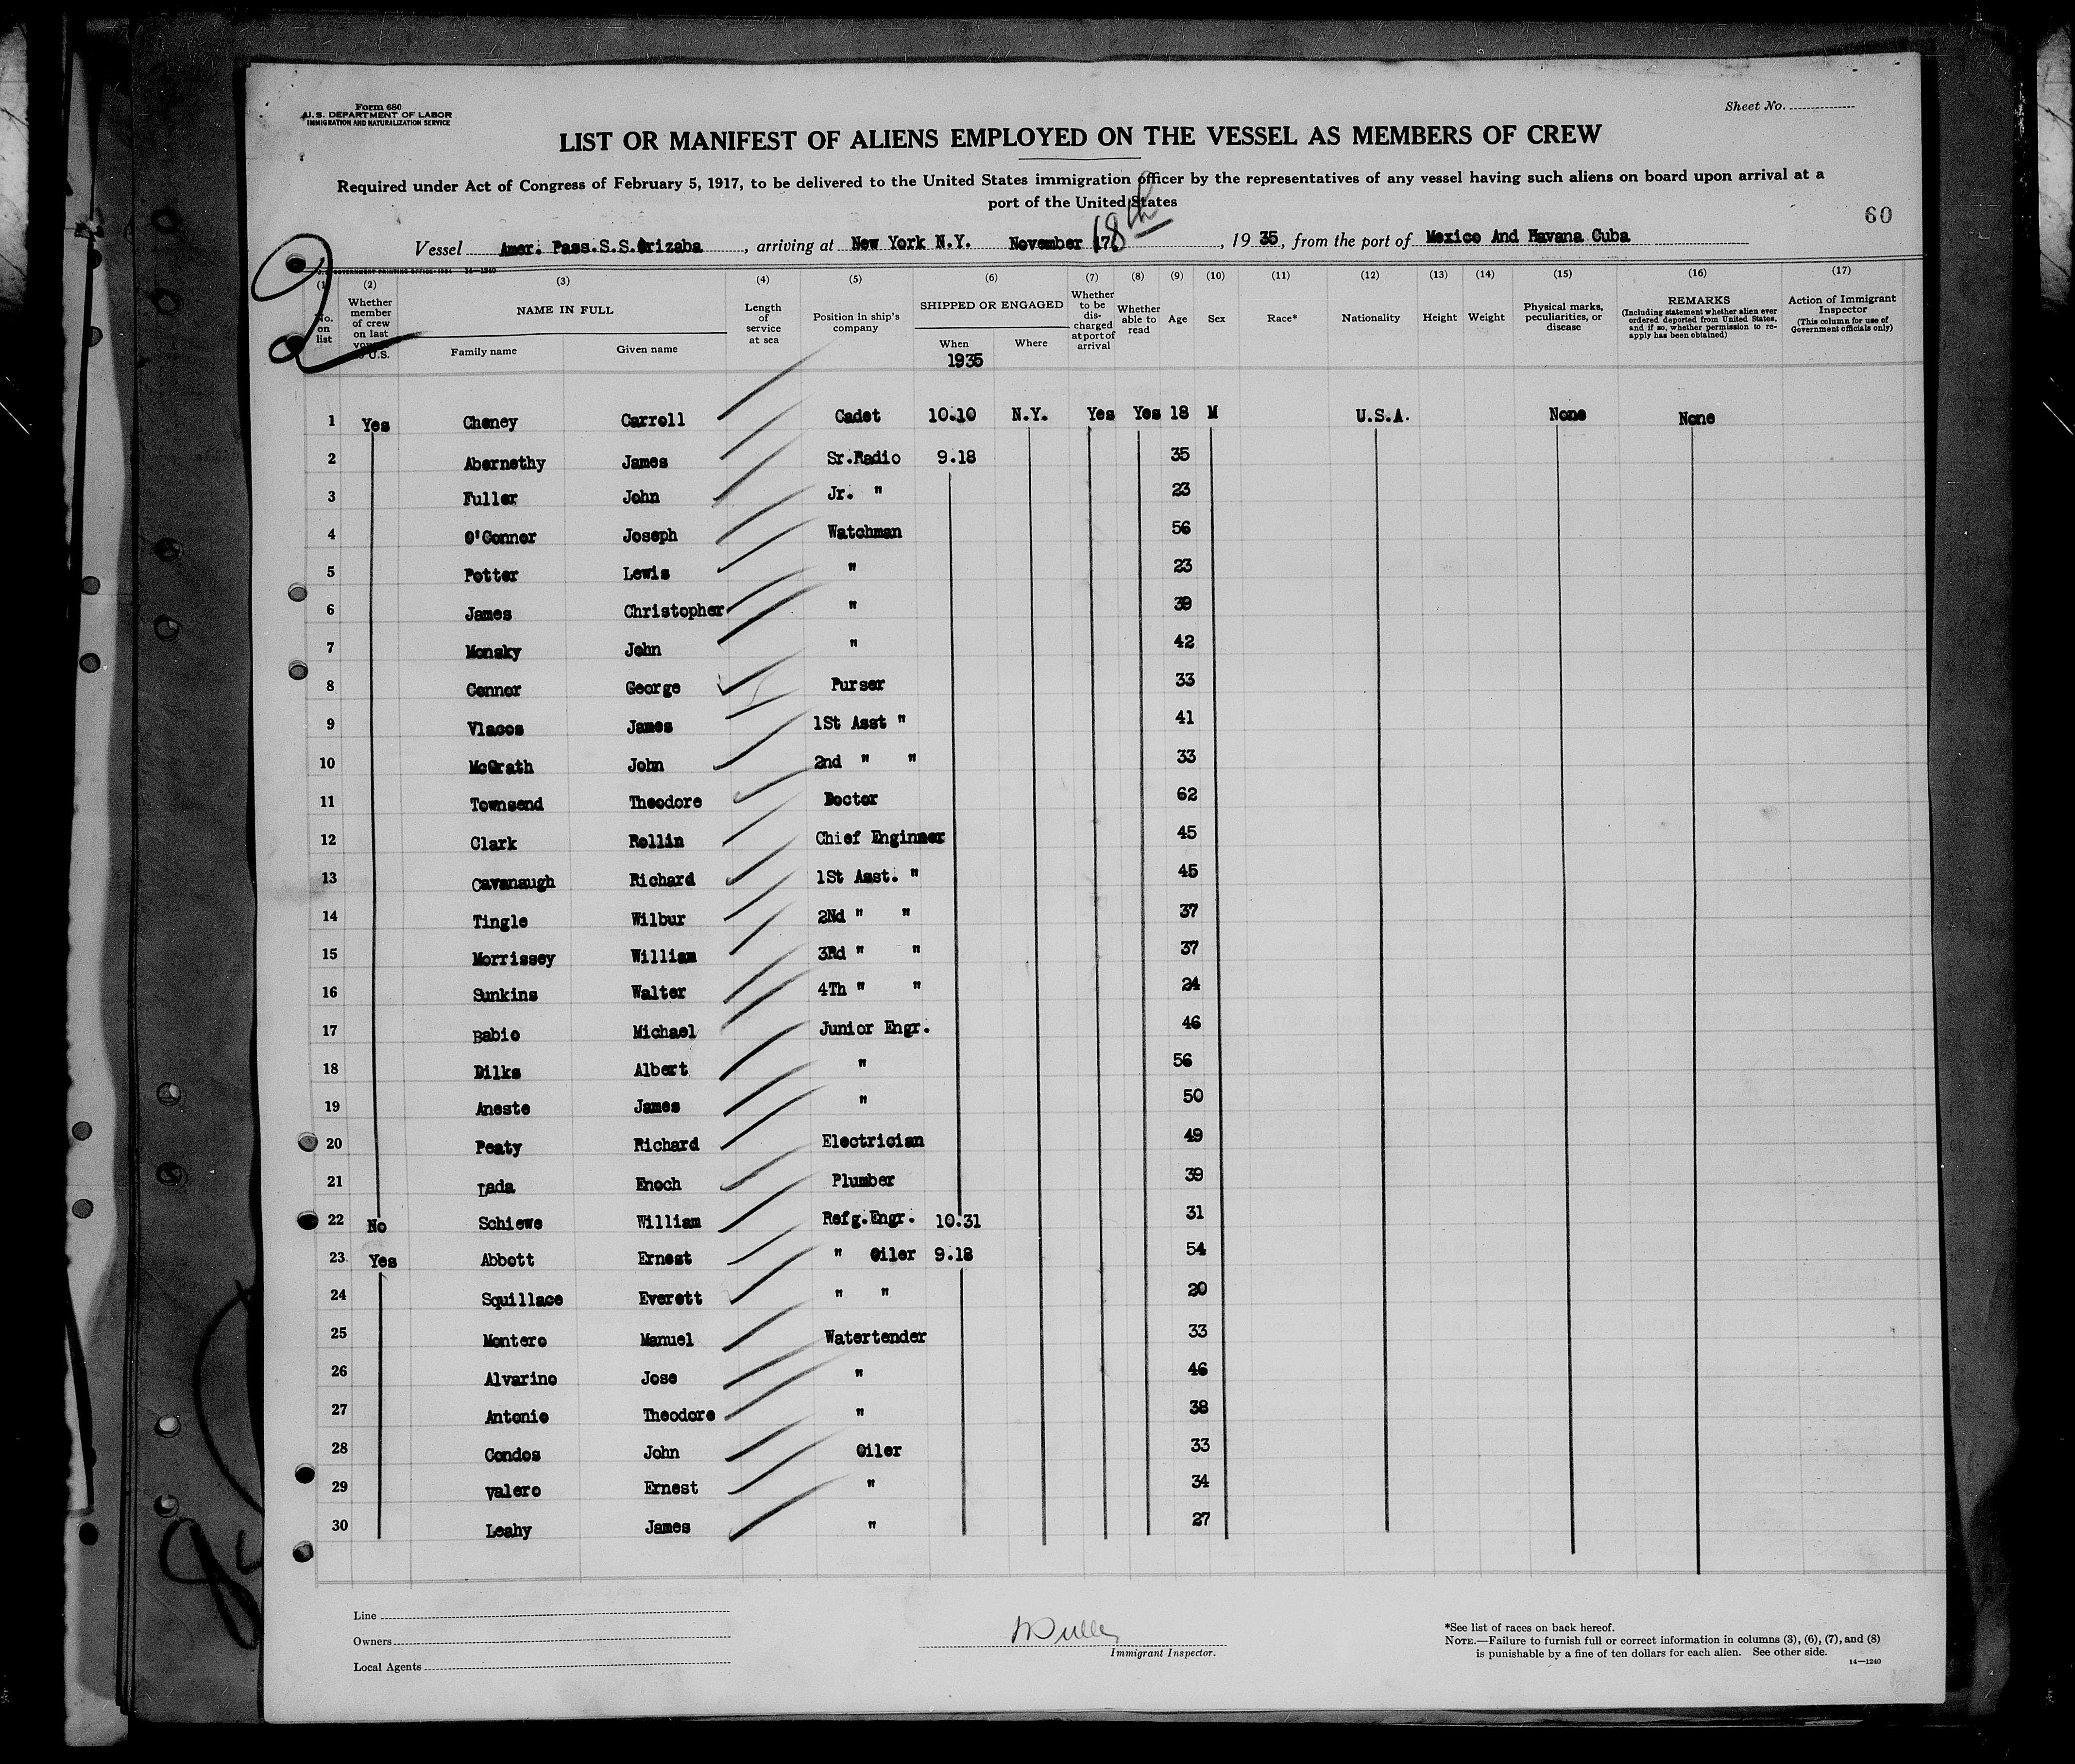 Form 680
U.S. DEPARTMENT OF LABOR
IMMIGRATION AND NATURALIZATION SERVICE
Sheet No.
LIST OR MANIFEST OF ALIENS EMPLOYED ON THE VESSEL AS MEMBERS OF CREW
Required under Act of Congress of February 5, 1917, to be delivered to the United States immigration officer by the representatives of any vessel having such aliens on board upon arrival at a
port of the United States
60
Vessel Amer. Pass.S.S.Orizaba, arriving at New York N.Y. November 17 18th, 1935, from the port of Mexico And Havana Cuba
U.S. GOVERNMENT PRINTING OFFICE: 1934 14—1240
(1) (2) (3) (4) (5) (6) (7) (8) (9) (10) (11) (12) (13) (14) (15) (16) (17)
No. on list
Whether member of crew on last voyage to U.S.
NAME IN FULL
Family name Given name
Length of service at sea
Position in ship's company
SHIPPED OR ENGAGED
When Where
1935
Whether to be discharged at port of arrival
Whether able to read
Age
Sex
Race*
Nationality
Height
Weight
Physical marks, peculiarities, or disease
REMARKS
(Including statement whether alien ever ordered deported from United States, and if so, whether permission to reapply has been obtained)
Action of Immigrant Inspector
(This column for use of Government officials only)
1 Yes Cheney Carroll Cadet 10.10 N.Y. Yes Yes 18 M U.S.A. None None
2 Abernethy James Sr.Radio 9.18 35
3 Fuller John Jr. " 23
4 O'Conner Joseph Watchman 56
5 Potter Lewis " 23
6 James Christopher " 39
7 Monsky John " 42
8 Connor George Purser 33
9 Vlacos James 1St Asst " 41
10 McGrath John 2nd " " 33
11 Townsend Theodore Doctor 62
12 Clark Rollin Chief Enginner 45
13 Cavanaugh Richard 1St Asst. " 45
14 Tingle Wilbur 2Nd " " 37
15 Morrissey William 3Rd " " 37
16 Sunkins Walter 4Th " " 24
17 Babic Michael Junior Engr. 46
18 Dilks Albert " 56
19 Aneste James " 50
20 Peaty Richard Electrician 49
21 Lada Enoch Plumber 39
22 No Schiewe William Refg.Engr. 10.31 31
23 Yes Abbott Ernest " Oiler 9.18 54
24 Squillace Everett " " 20
25 Montero Manuel Watertender 33
26 Alvarino Jose " 46
27 Antonio Theodore " 38
28 Condos John Oiler 33
29 valero Ernest " 34
30 Leahy James " 27
Line
Owners
Local Agents
Immigrant Inspector.
*See list of races on back hereof.
NOTE.—Failure to furnish full or correct information in columns (3), (6), (7), and (8)
is punishable by a fine of ten dollars for each alien. See other side.
14—1240